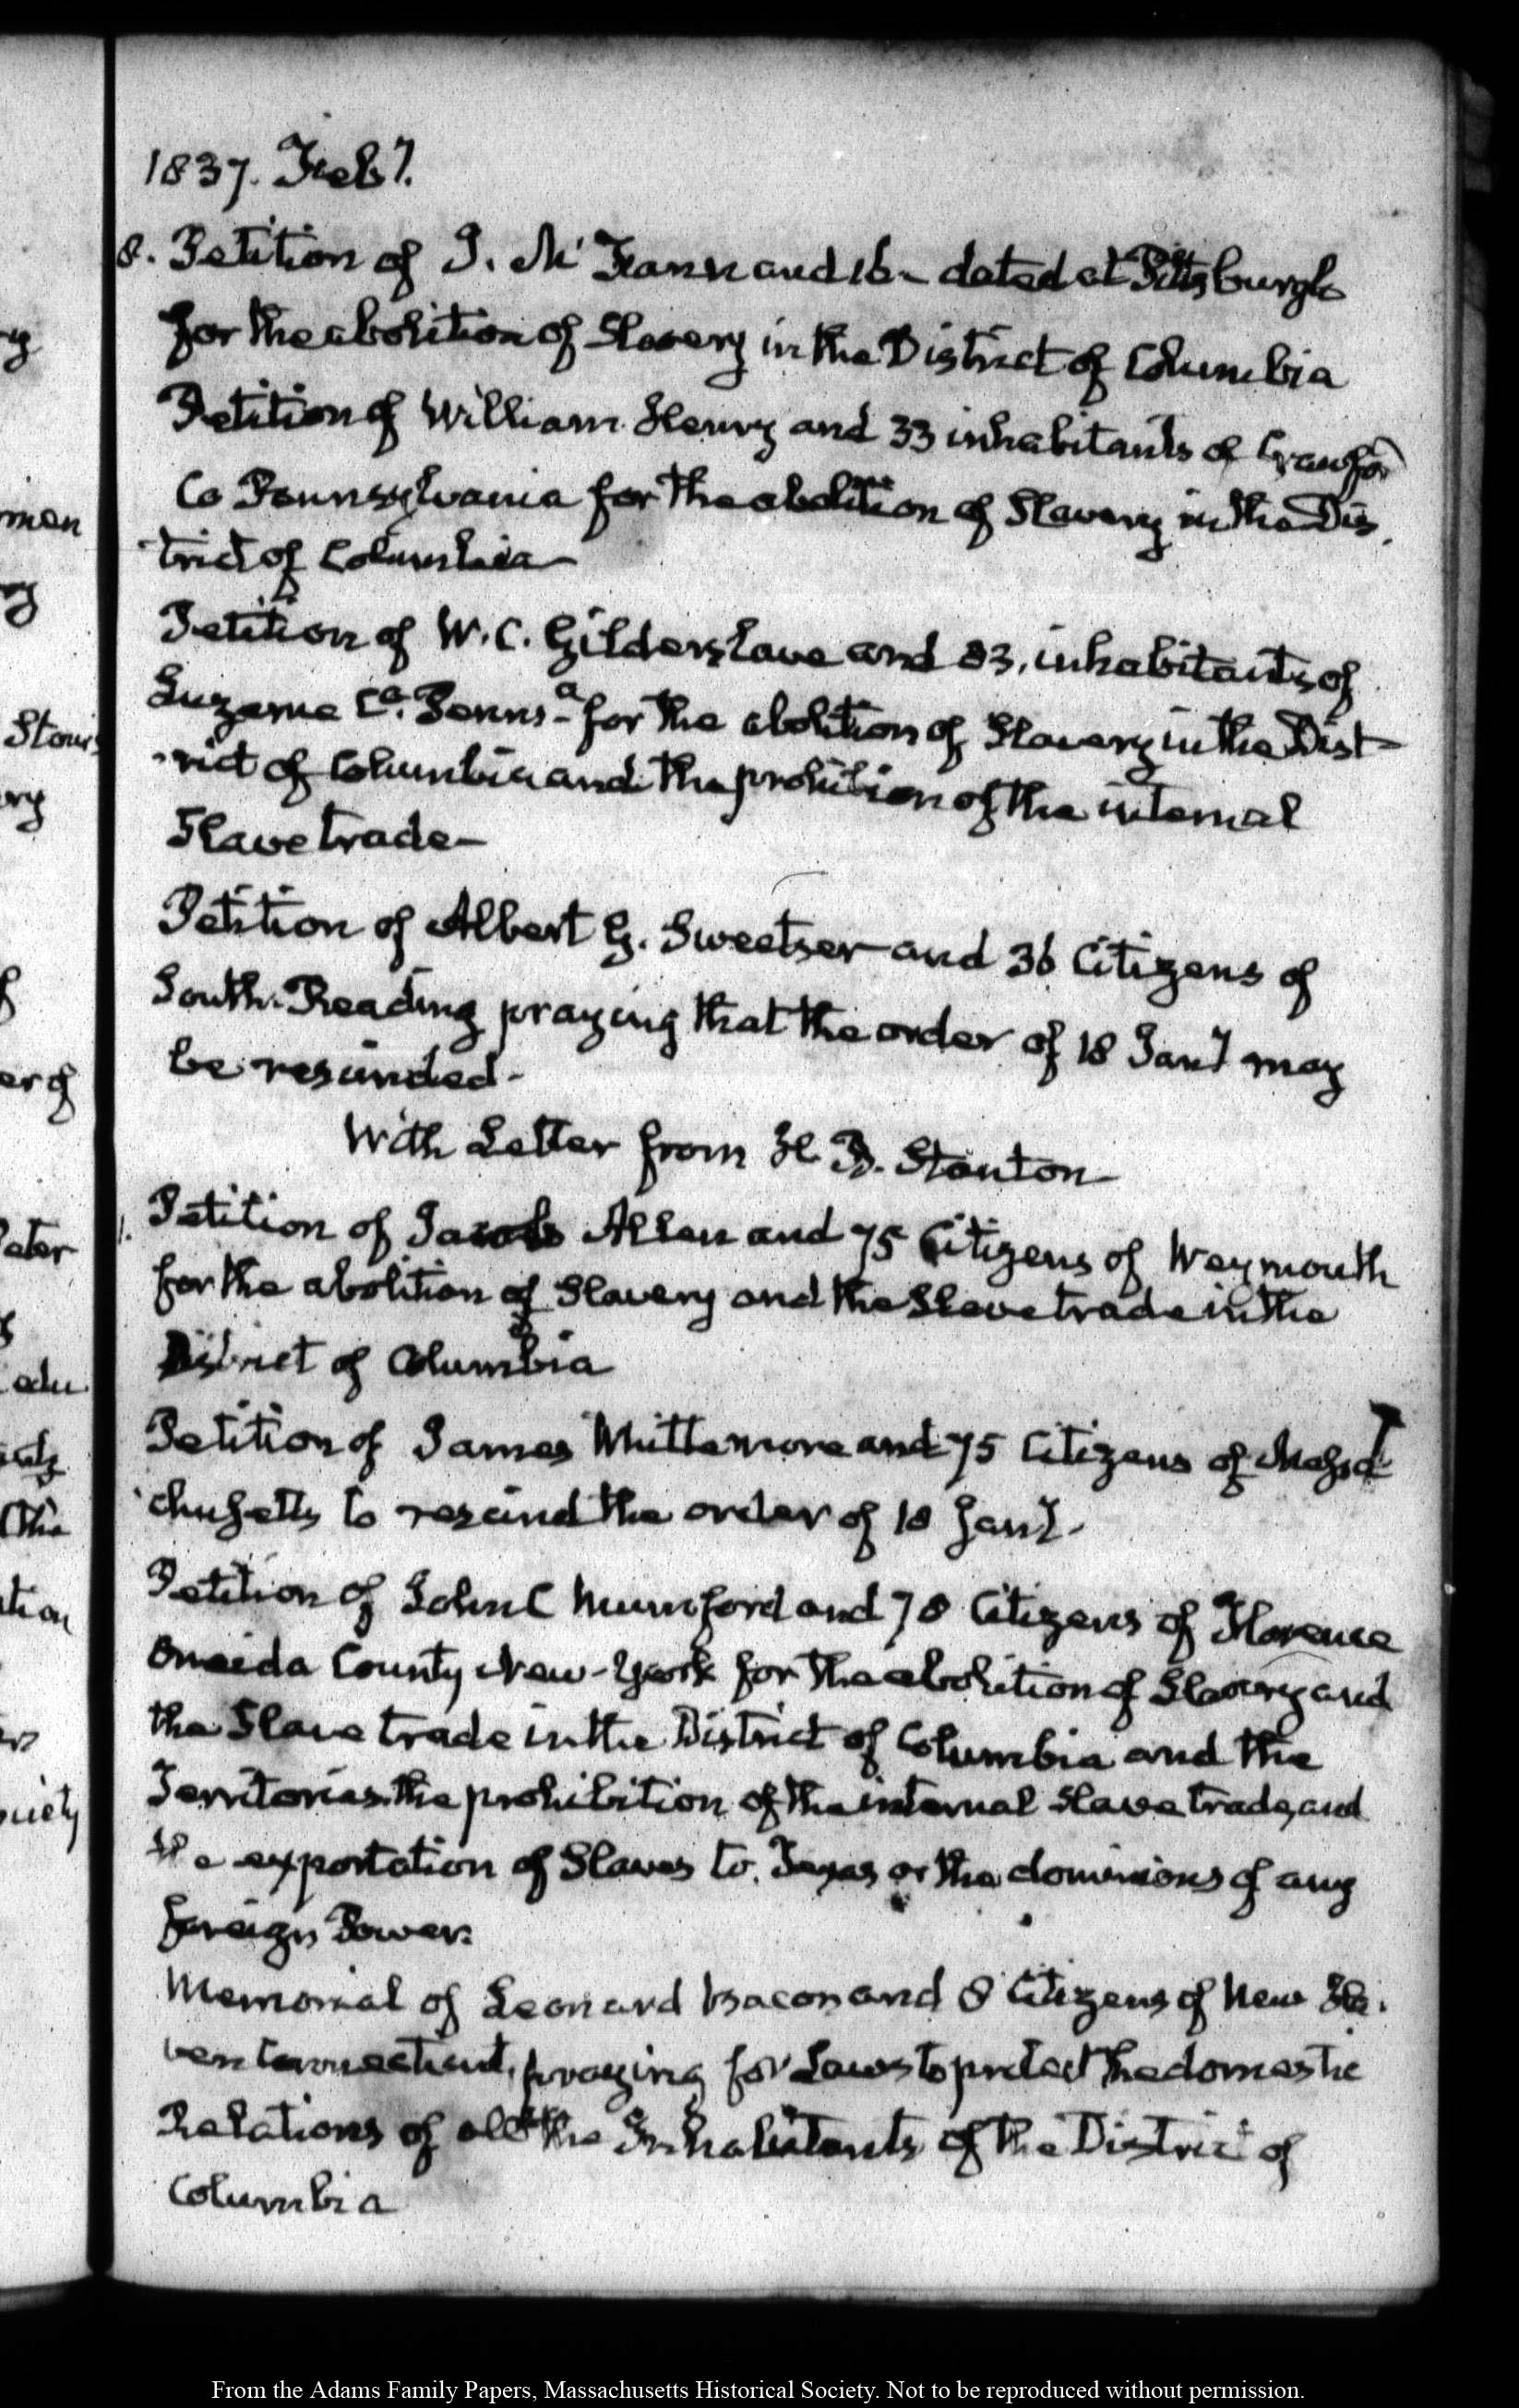 1837. Feby.
8. Petition of J. Mc and 16 - dated at Pittsburgh
for the abolition of Slavery in the District of Columbia
Petition of William Henry and 33 inhabitants of Crawford
Co Pennsylvania for the abolition of Slavery in the Dis
trict of Columbia -
Petition of W. C. Gilderslave and 83, inhabitants of
Luzerne Co. Penns-a for the abolition of Slavery in the Dist
-rict of Columbia and the prohibition of the internal
Slave trade -
Petition of Albert G. Sweetser and 36 Citizens of
South-Reading praying that the order of 18 Jany may
be rescinded -
With Letter from H. B. Stanton -
1. Petition of Jacob Allen and 75 Citizens of Weymouth
for the abolition of Slavery and the Slave trade in the
District of Columbia
Petition of James Whittemore and 75 Citizens of Massa
chusetts to rescind the order of 18 Jany -
Petition of John C Mumford and 78 Citizens of Florence
Oneida County New-York for the abolition of Slavery and
the Slave trade in the District of Columbia and the
Territories. the prohibition of the internal Slave trade, and
the exportation of Slaves to Texas or the dominions of any
foreign Power.
Memorial of Leonard Bacon and 8 Citizens of New Ha-
ven Connecticut, praying for Laws to protect the domestic
Relations of all the Inhabitants of the District of
Columbia
From the Adams Family Papers, Massachusetts Historical Society. Not to be reproduced without permission.